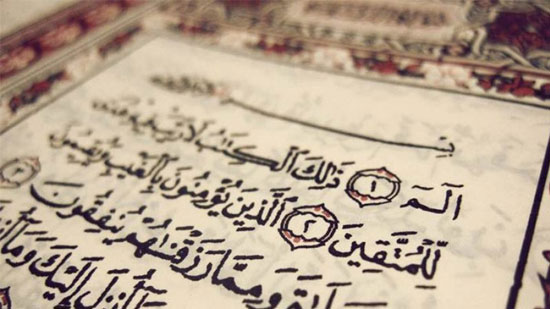 الٓمٓ ١ ذَٰلِكَ ٱلْكِتَٰبُ لَا رَيْبَ فِيهِ هُدًى
لِّلْمُتَّقِينَ ٢ ٱلَّذِينَ يُؤْمِنُونَ بِٱلْغَيْبِ وَيُقِيمُونَ
وَمِمَّا رَزَقْنَٰهُمْ يُنفِقُونَ ٣
أُنزِلَ إِلَيْكَ وَمَآ